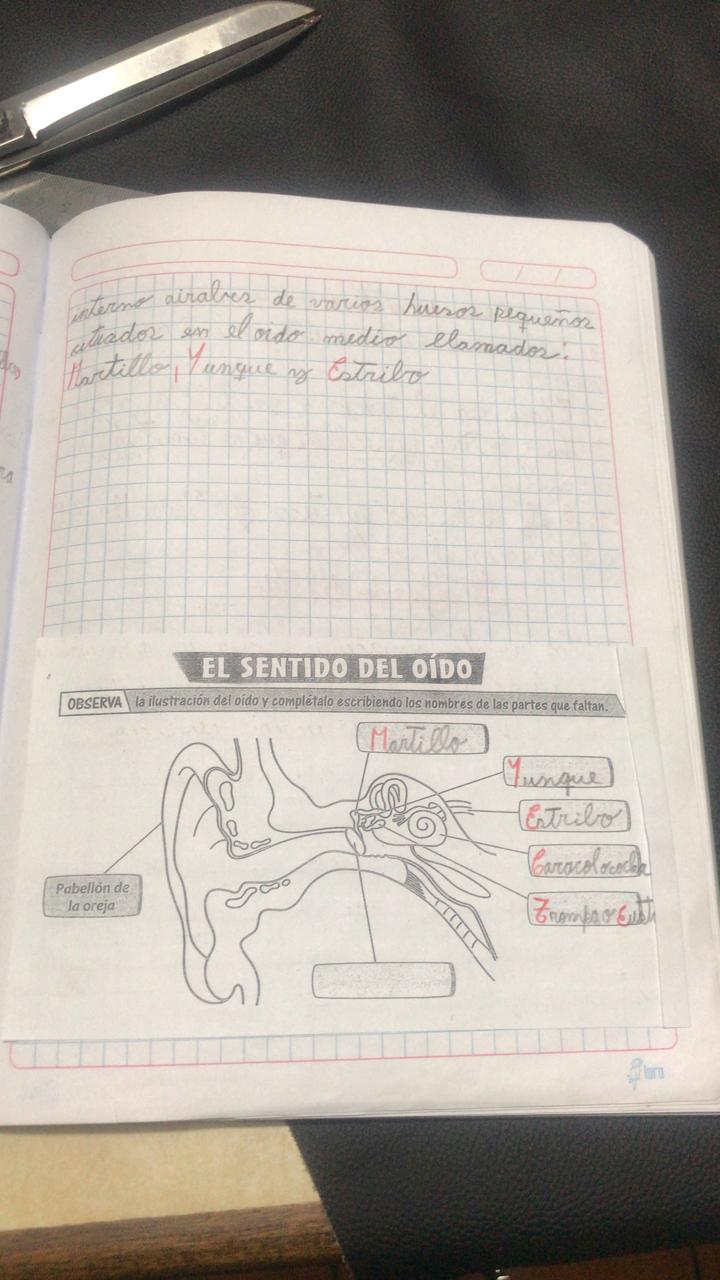 interno airabes de varios huesos pequeños
situador en el oido medio llamador:
Martillo, Yunque y Estribo
EL SENTIDO DEL OÍDO
OBSERVA la ilustración del oído y complétalo escribiendo los nombres de las partes que faltan.
Martillo
Yunque
Estribo
Caracol o cocle
Pabellón de
la oreja
Trompa o Eust
loro